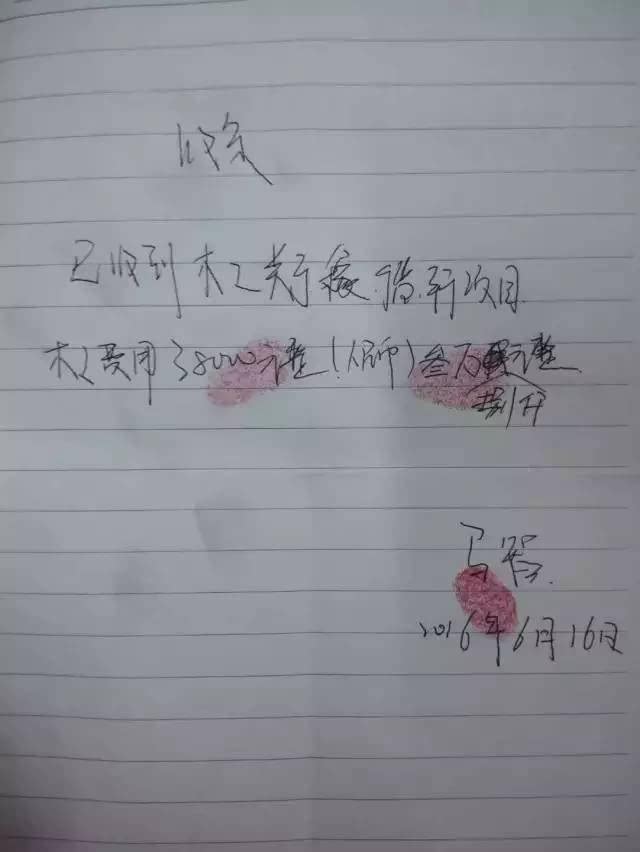 收条
已收到木工关于 项目
木工费用38000元整(人民币)叁万 元整
捌仟
马智
2016年6月16日